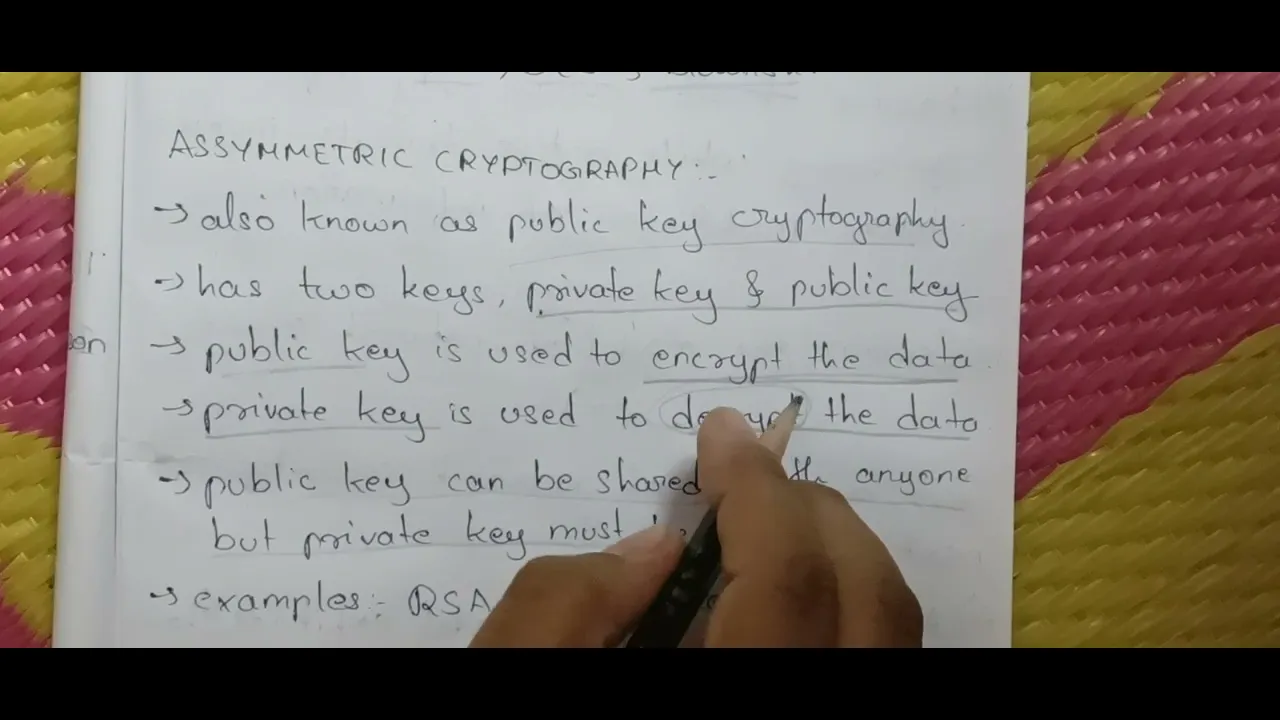 ASSYMMETRIC CRYPTOGRAPHY :-
→ also known as public key cryptography.
→ has two keys, private key & public key
→ public key is used to encrypt the data.
→ private key is used to decrypt the data
→ public key can be shared anyone
but private key must
→ examples :- RSA